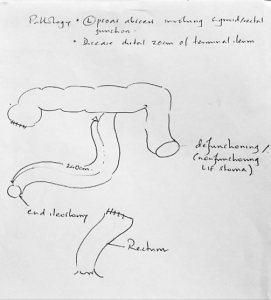 Pathology • (L) psoas abscess involving sigmoid/rectal
junction.
• Disease distal 20cm of terminal ileum
defunctioning/
(nonfunctioning
LIF stoma)
240cm
end ileostomy
Rectum